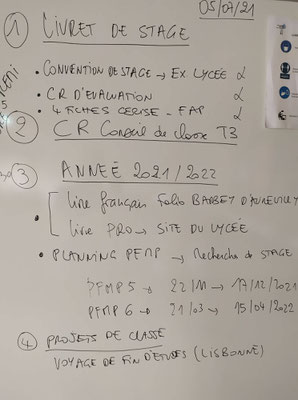 05/07/21
① LIVRET DE STAGE
• CONVENTION DE STAGE → EX. LYCÉE α
• CR D'EVALUATION α
• 4 FICHES CERISE - FAP α
② CR Conseil de classe T3
③ ANNÉE 2021/2022
• Livre français Folio BARBEY D'AUREVILLY
Livre PRO → SITE DU LYCÉE
• PLANNING PFMP → Recherche de STAGE
PFMP 5 → 22/11 → 17/12/2021
PFMP 6 → 21/03 → 15/04/2022
④ PROJETS DE CLASSE
VOYAGE DE FIN D'ETUDES (LISBONNE)